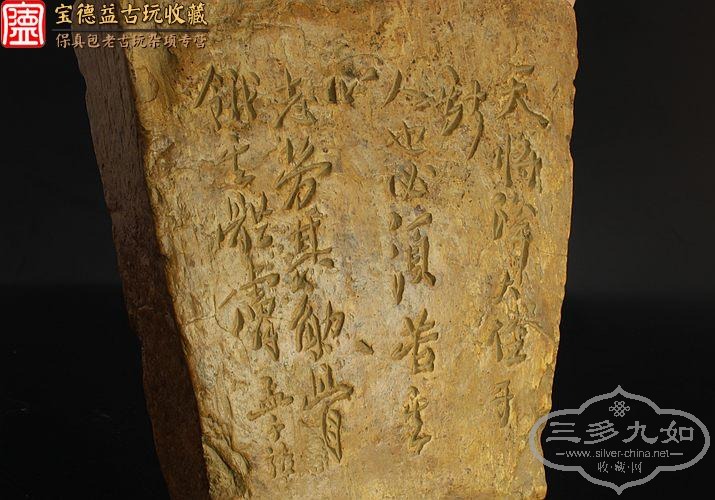 宝德益古玩收藏
保真包老古玩杂项专营
天將降大任于
斯
人也必須苦其
心
志劳其筋骨
餓其體膚 孟子
三多九如
www.silver-china.net
收·藏·网